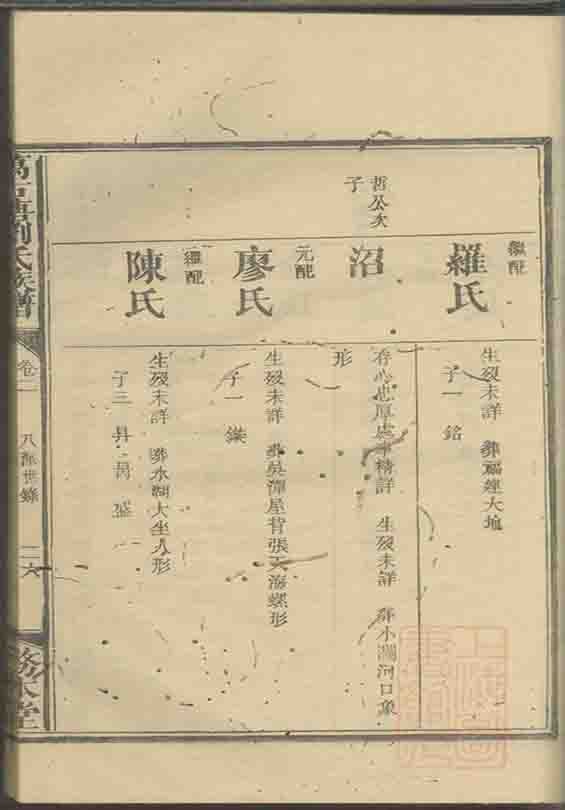 繼配
羅氏
生殁未詳 葬福逕大地
子一 銘
哲公次
子
沼
存心忠厚處事精詳 生殁未詳 葬小澗河口象
形
元配
廖氏
生殁未詳 葬吳潭屋背張天海螺形
子一 鎂
繼配
陳氏
生殁未詳 葬水澗大坐人形
子三 昇 昺 盛
劉氏族譜
卷二
八 世錄
二六
敦本堂